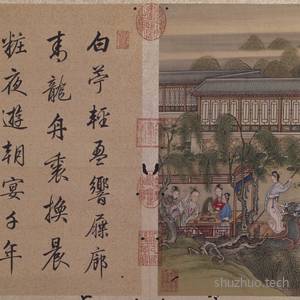 白苧輕盈響屧廊
青龍舟裏換晨
粧夜遊朝宴千年
shuzhuo.tech